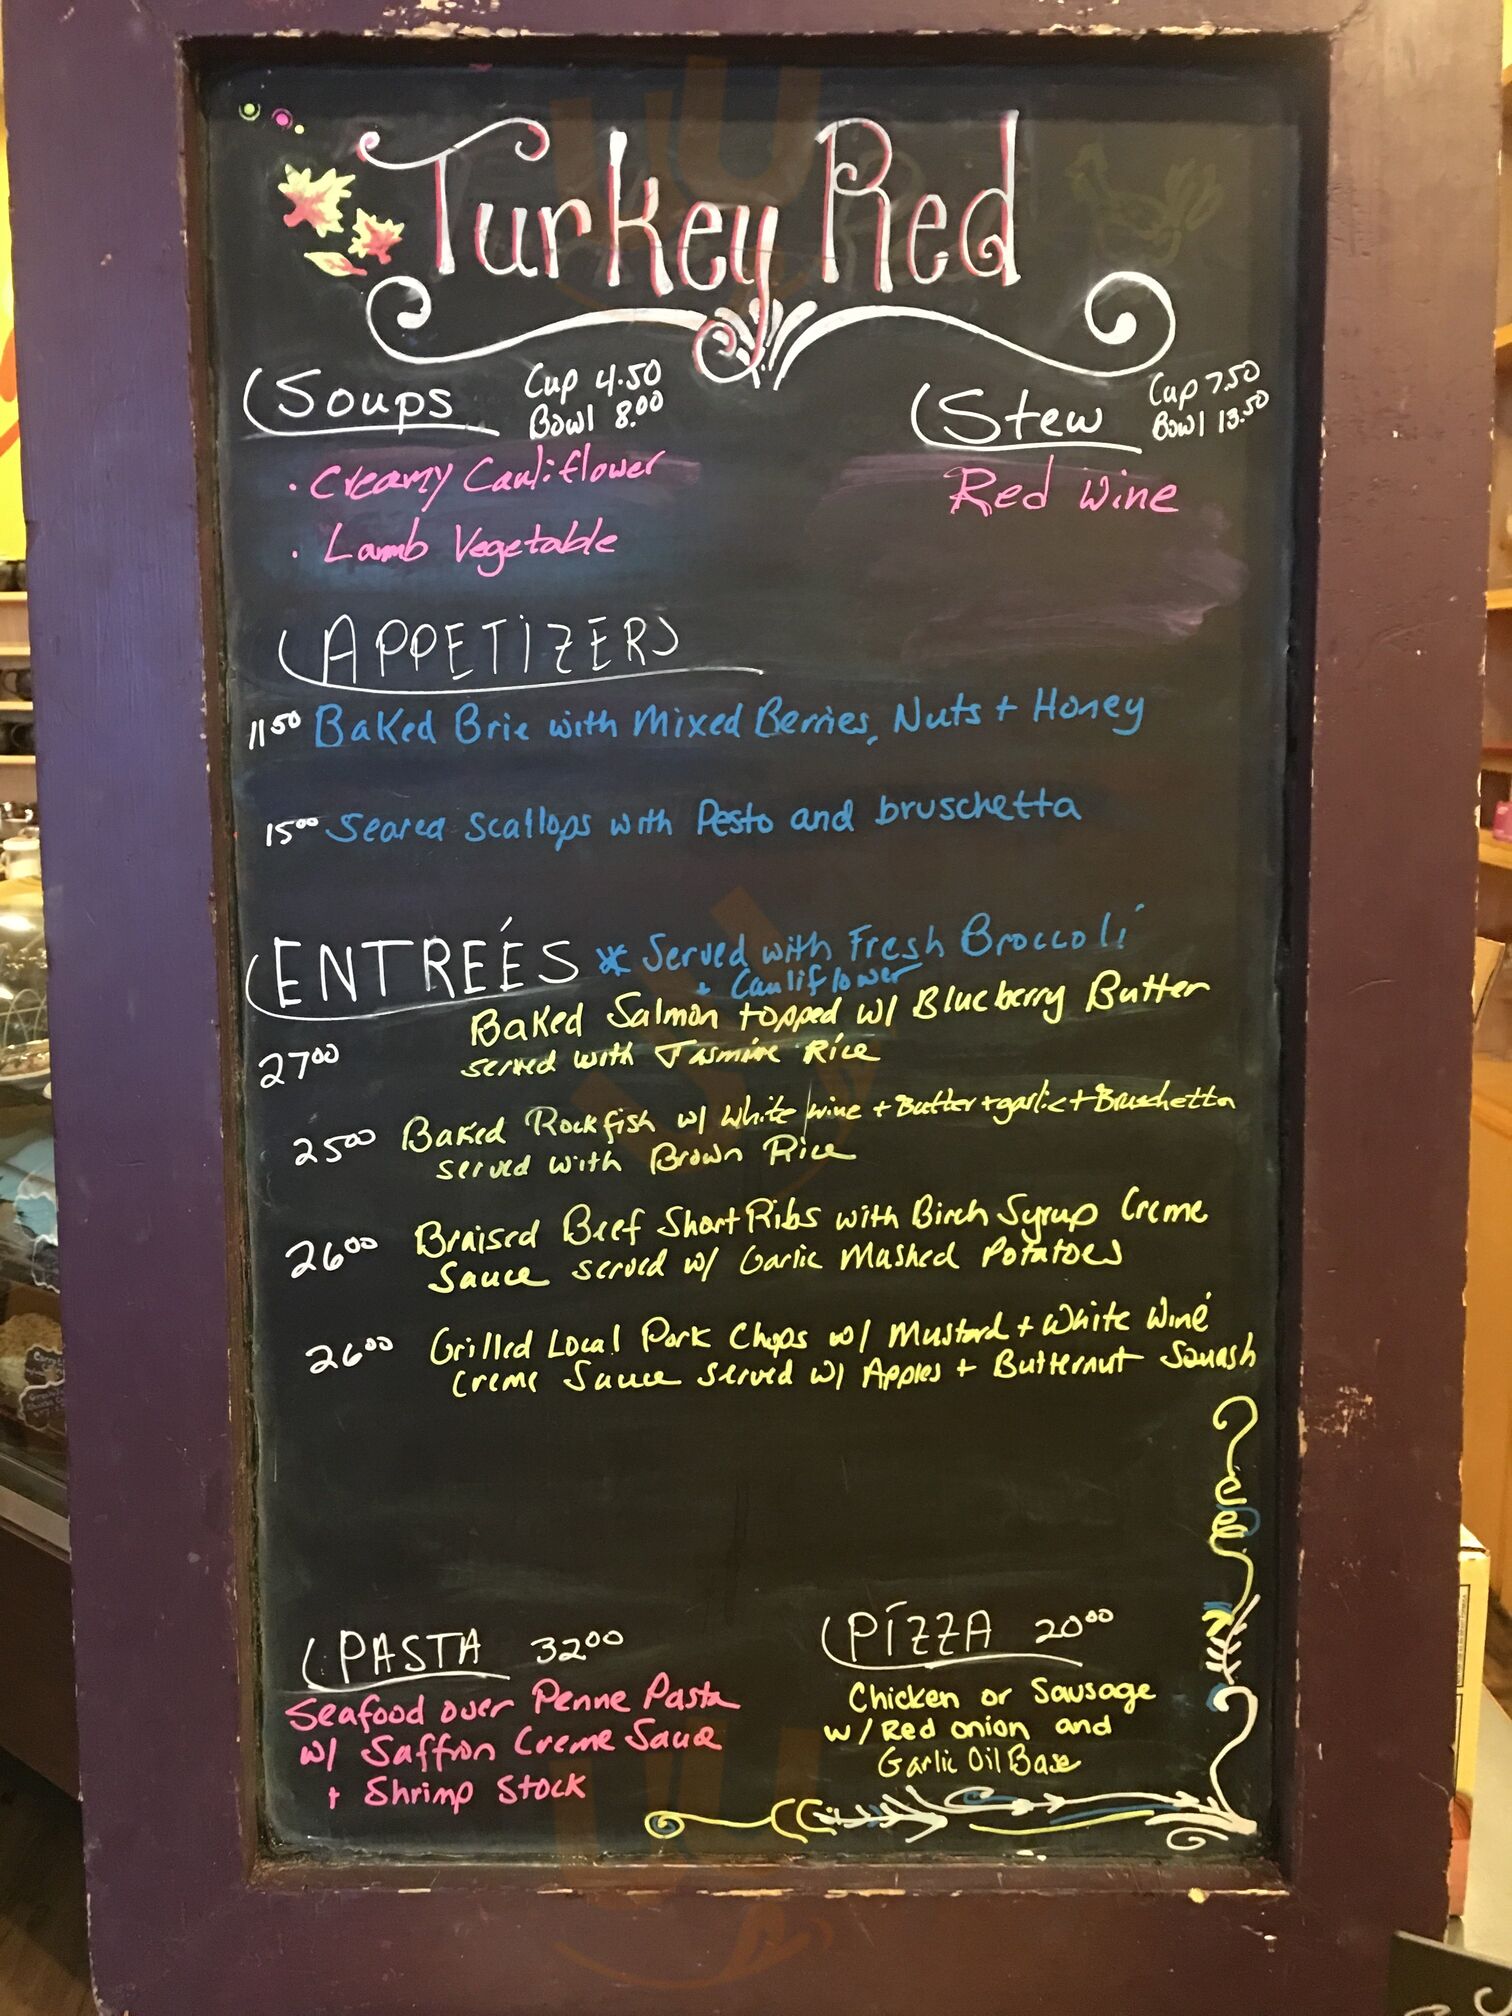 Turkey Red
Soups Cup 4.50
Bowl 8.00
Stew Cup 7.50
Bowl 13.50
· Creamy Cauliflower
· Lamb Vegetable
Red Wine
APPETIZERS
11.50 Baked Brie with Mixed Berries, Nuts + Honey
15.00 Seared Scallops with Pesto and bruschetta
ENTREÉS * Served with Fresh Broccoli
+ Cauliflower
27.00 Baked Salmon topped w/ Blueberry Butter
served with Jasmine Rice
25.00 Baked Rockfish w/ White wine + Butter + garlic + Bruschetta
served with Brown Rice
26.00 Braised Beef Short Ribs with Birch Syrup Creme
Sauce served w/ Garlic Mashed Potatoes
26.00 Grilled Local Pork Chops w/ Mustard + White Wine
Creme Sauce served w/ Apples + Butternut Squash
PASTA 32.00
Seafood over Penne Pasta
w/ Saffron Creme Sauce
+ Shrimp Stock
PIZZA 20.00
Chicken or Sausage
w/ Red onion and
Garlic Oil Base